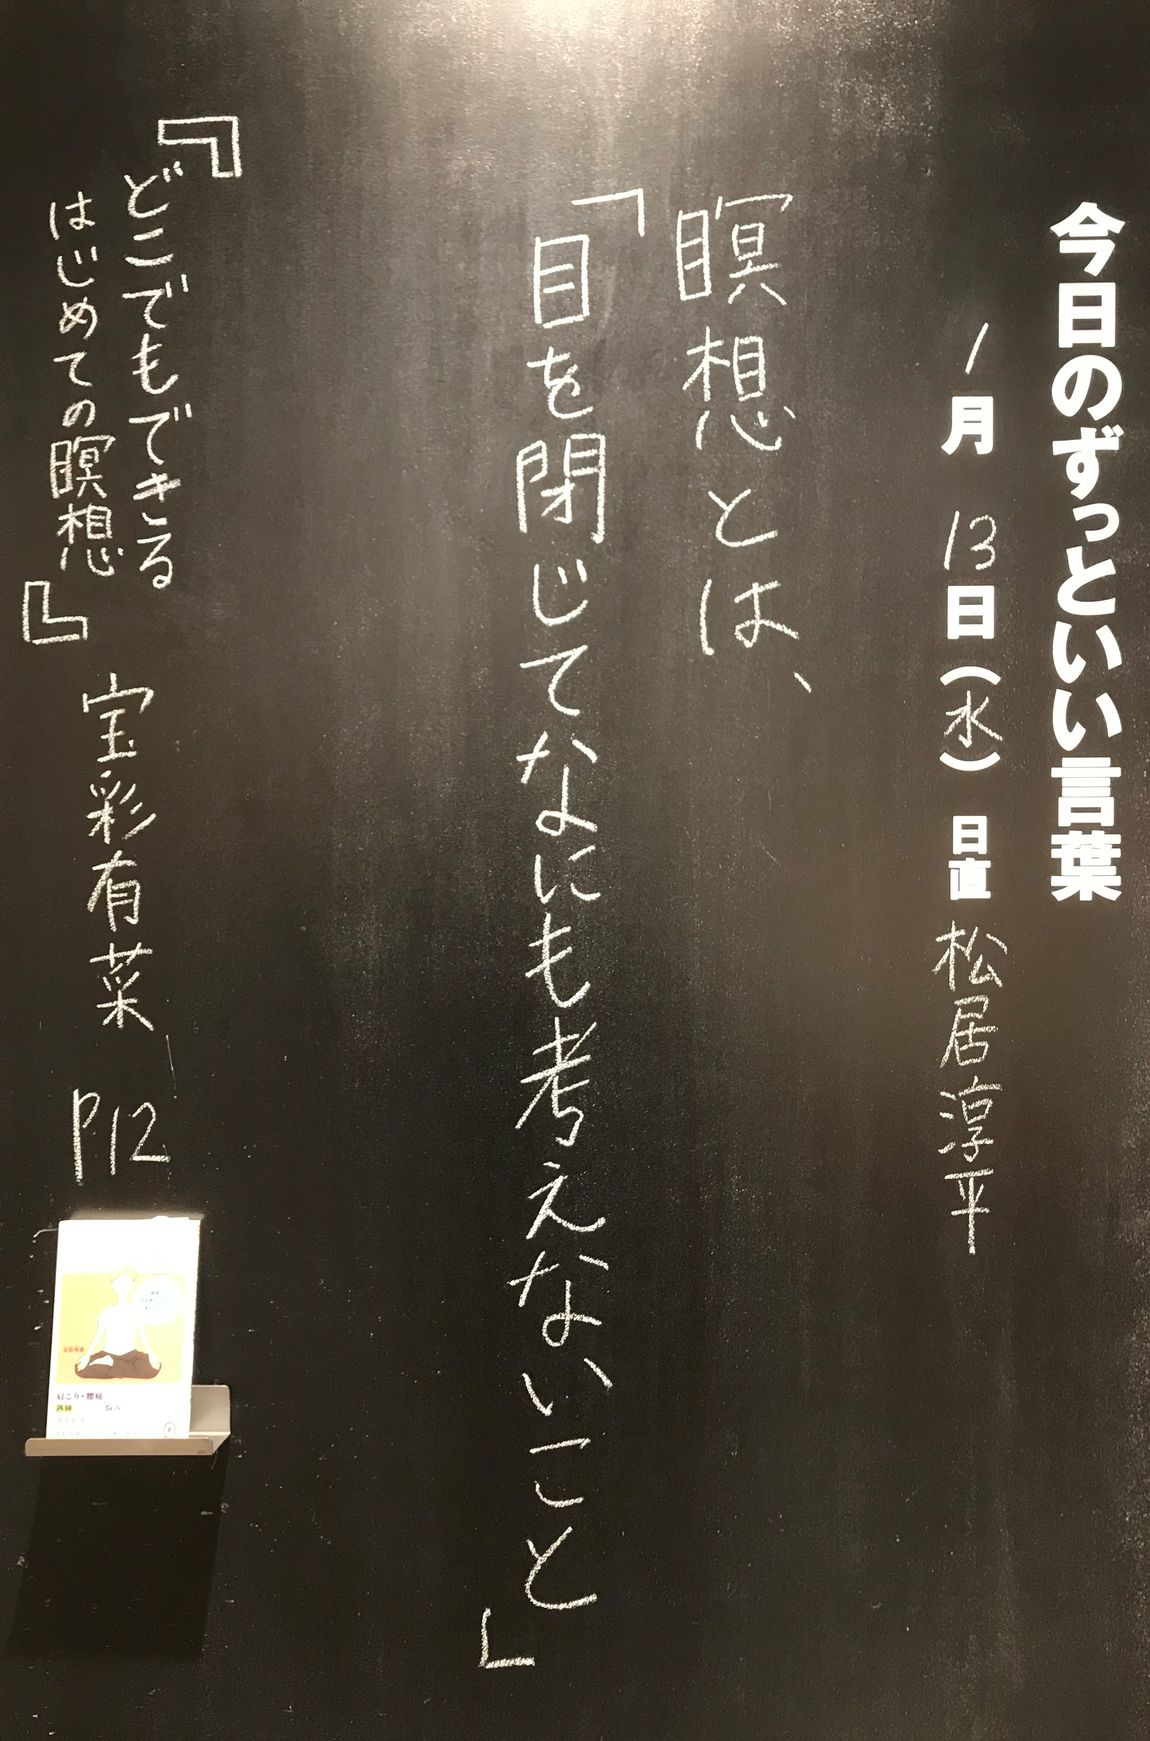 今日のずっといい言葉
1月13日(水) 日直 松居淳平
瞑想とは、
「目を閉じてなにも考えないこと」
『どこでもできる
はじめての瞑想』
宝彩有菜 P12
宝彩有菜
肩こり・腰痛
熟睡
悩み